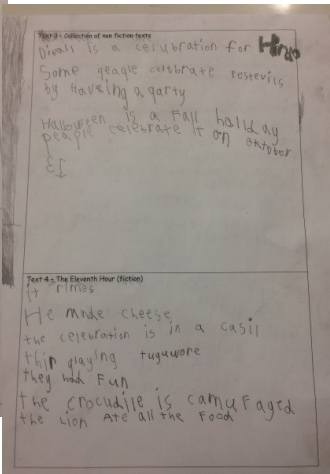 Text 3 - Collection of non fiction texts
Divali is a celubration for Hindo
Some geagle celebrate festevils
by Haveing a garty
Halloween is a Fall holiday
people celebrate it on oktober
31
Text 4 - The Eleventh Hour (fiction)
it rimes
He made cheese
the celebration is in a casil
thir glaying tuguwore
they had Fun
the crocudile is camuFaged
the Lion Ate all the Food